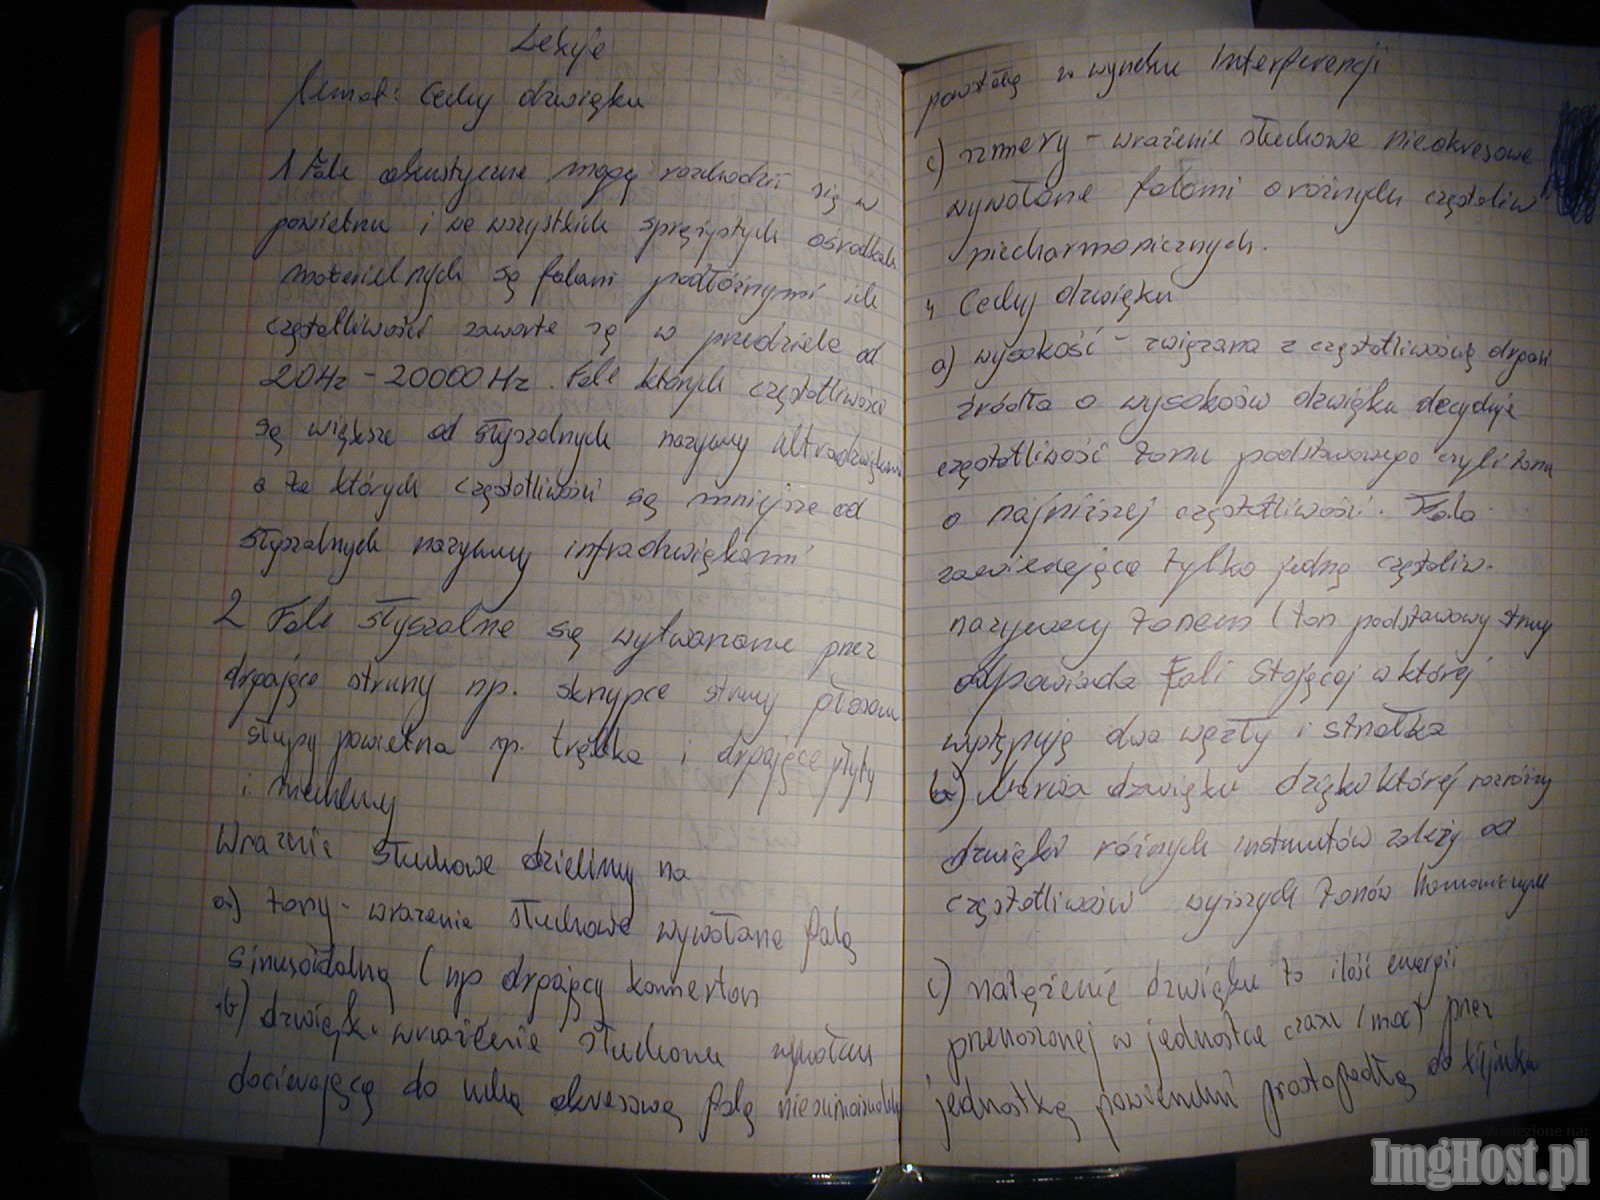 Lekcje
Temat: Cechy dźwięku
1 Fale akustyczne mogą rozchodzić się w
powietrzu i we wszystkich sprężystych ośrodkach
materialnych są falami podłużnymi ich
częstotliwości zawarte są w przedziele od
20Hz - 20000Hz. Fale których częstotliwości
są większe od słyszalnych nazywamy ultradźwiękami
a te których częstotliwości są mniejsze od
słyszalnych nazywamy infradźwiękami
2 Fale słyszalne są wytwarzane przez
drgające struny np. skrzypce struny głosowe
słupy powietrza np. trąbka i drgające płyty
i membrany
Wrażenie słuchowe dzielimy na
a) tony - wrażenie słuchowe wywołane falą
sinusoidalną (np drgający kamerton
b) dźwięk - wrażenie słuchowe wywołan
docierającą do ucha okresową falą niesinusoidalną
powstałą w wyniku Interferencji
c) szmery - wrażenie słuchowe nieokresowe
wywołane falami o różnych częstotliw
niecharmonicznych.
4 Cechy dźwięku
a) wysokość - związana z częstotliwością drgań
źródła o wysokości dźwięku decyduje
częstotliwość tonu podstawowego czyli tonu
o najniższej częstotliwości. Fala
zawierająca tylko jedną częstotliw.
nazywamy tonem (ton podstawowy struny
odpowiada Fali Stojącej w której
występują dwa węzły i strzałka
b) Barwa dźwięku dzięki której rozróżniamy
dźwięki różnych instrumentów zależy od
częstotliwości wyższych tonów harmonicznych
c) natężenie dźwięku to ilość energii
przenoszonej w jednostce czasu (moc) przez
jednostkę powierzchni prostopadłą do kierunku
znalezione na:
ImgHost.pl